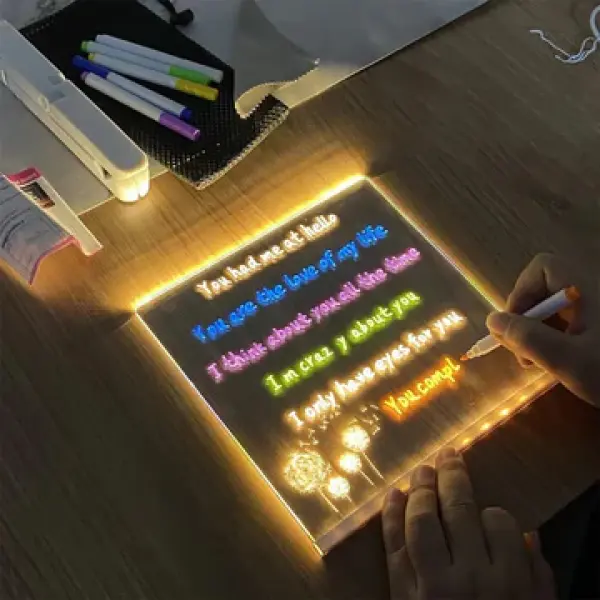 You had me at hello
You are the love of my life
I think about you all the time
I m craz y about you
I only have eyes for you
You compl